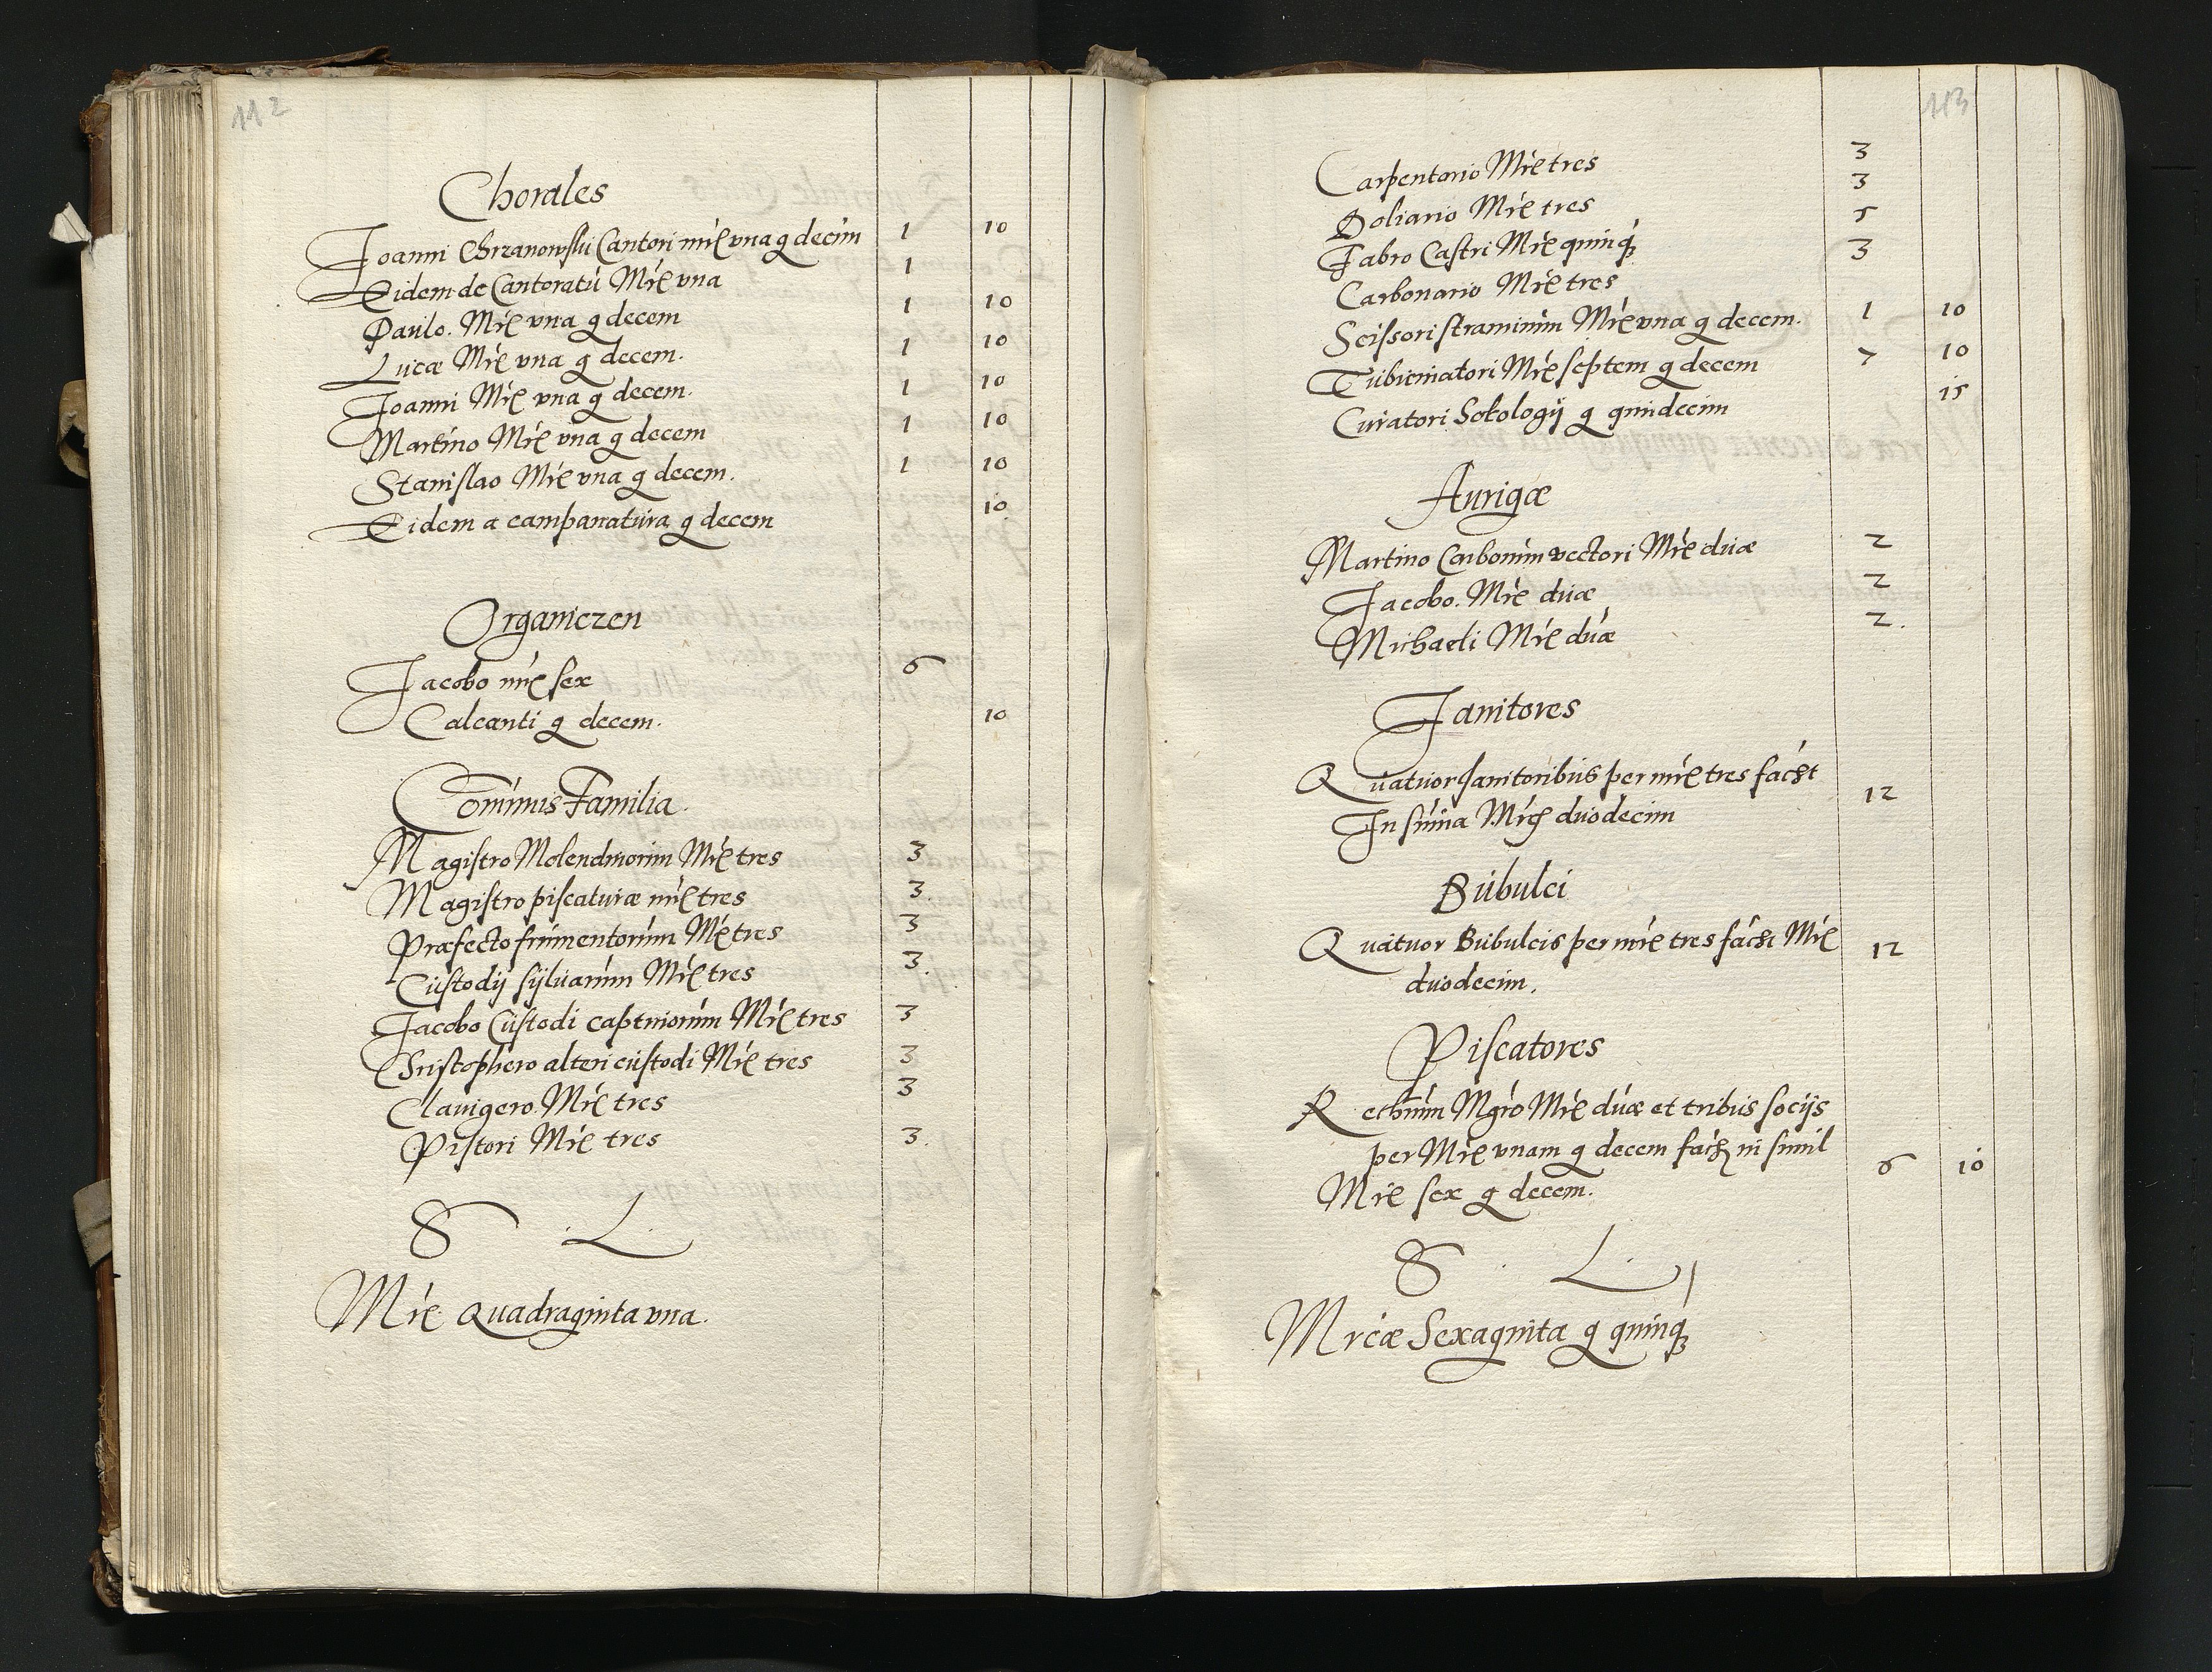 112
Chorales
Joanni Chrzanowski Cantori mrć vna g decim 1 10
Eidem de Cantoratu Mrć vna 1
Paulo. Mrć vna g decem 1 10
Lucæ Mrć vna g decem. 1 10
Joanni Mrć vna g decem. 1 10
Martino Mrć vna g decem 1 10
Stanislao Mrć vna g decem. 1 10
Eidem a campanatura g decem 10
Organiczen
Jacobo mrć sex 6
Calcanti g decem. 10
Com̄unis Familia.
Magistro Molendinorum Mrć tres 3
Magistro piscaturæ mrć tres 3.
Præfecto frumentorum Mrć tres 3
Custodij syluarum Mrć tres 3.
Jacobo Custodi captiuorum Mrć tres 3
Christophero alteri custodi Mrć tres 3
Clauigero. Mrć tres 3
Pistori Mrć tres 3.
S L.
Mrć Quadraginta vna.
113
Carpentario Mrć tres 3
Doliario Mrć tres 3
Fabro Castri Mrć quinq3 5
Carbonario Mrć tres 3
Scissori straminum Mrć vna g decem. 1 10
Tubicinatori Mrć septem g decem 7 10
Curatori Sokologij g quindecim 15
Aurigæ
Martino Carbonum vectori Mrć duæ 2
Jacobo. Mrć duæ 2
Michaeli Mrć duæ 2.
Janitores
Quatuor Janitoribus per mrć tres fac̄t
In sum̄a Mrć duodecim 12
Bubulci
Quatuor Bubulcis per mrć tres fac̄t Mrć 12
duodecim.
Piscatores
Rethium Mgro Mrć duæ et tribus socijs
per Mrć vnam g decem fac̄ in simul
Mrć sex g decem. 6 10
S. L.
Mrcæ Sexaginta g quinq3